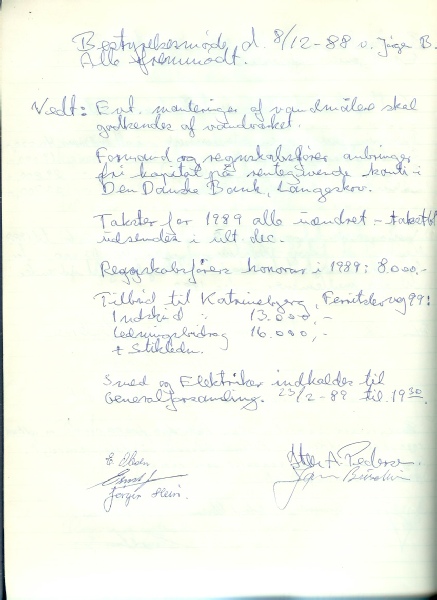 Bestyrelsesmøde d. 8/12-88 v. Jørgen B.
Alle fremmødt.
Vedt: Evt. monteringer af vandmålere skal
godkendes af vandværket.
Formand og regnskabsfører anbringer
fri kapital på rentegivende konti i
Den Danske Bank, Langeskov.
Takster for 1989 alle uændret - takstbl
udsendes i ult. dec.
Regnskabsførers honorar i 1989: 8.000,-
Tilbud til Katrinebjerg, Ferritslevvej 99:
Indskud : 13.000,-
Ledningsbidrag 16.000,-
+ Stikledn.
Smed og Elektriker indkaldes til
Generalforsamling. 23/2-89 til 19 30.
E. Olsen
Jørgen
A. Pedersen